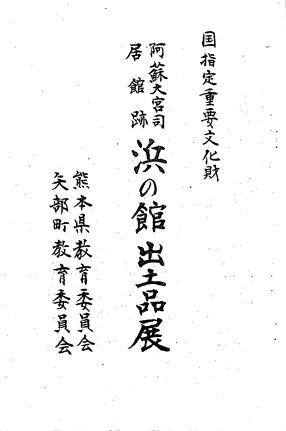 国指定重要文化財
阿蘇大宮司
居館跡
浜の館出土品展
熊本県教育委員会
矢部町教育委員会